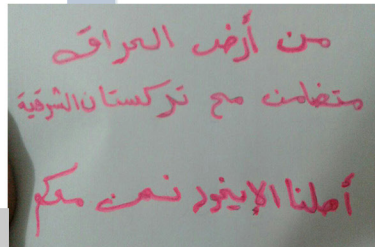 من أرض العراق
متضامن مع تركستان الشرقية
أهلنا الإيغور نحن معكم